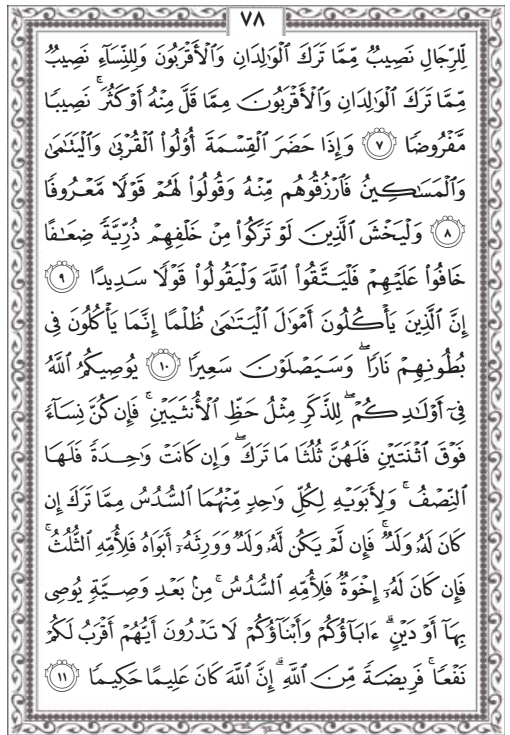 ٧٨
لِّلرِّجَالِ نَصِيبٌ مِّمَّا تَرَكَ ٱلْوَٰلِدَانِ وَٱلْأَقْرَبُونَ وَلِلنِّسَآءِ نَصِيبٌ
مِّمَّا تَرَكَ ٱلْوَٰلِدَانِ وَٱلْأَقْرَبُونَ مِمَّا قَلَّ مِنْهُ أَوْ كَثُرَ ۚ نَصِيبًا
مَّفْرُوضًا ٧ وَإِذَا حَضَرَ ٱلْقِسْمَةَ أُو۟لُوا۟ ٱلْقُرْبَىٰ وَٱلْيَتَٰمَىٰ
وَٱلْمَسَٰكِينُ فَٱرْزُقُوهُم مِّنْهُ وَقُولُوا۟ لَهُمْ قَوْلًا مَّعْرُوفًا
٨ وَلْيَخْشَ ٱلَّذِينَ لَوْ تَرَكُوا۟ مِنْ خَلْفِهِمْ ذُرِّيَّةً ضِعَٰفًا
خَافُوا۟ عَلَيْهِمْ فَلْيَتَّقُوا۟ ٱللَّهَ وَلْيَقُولُوا۟ قَوْلًا سَدِيدًا ٩
إِنَّ ٱلَّذِينَ يَأْكُلُونَ أَمْوَٰلَ ٱلْيَتَٰمَىٰ ظُلْمًا إِنَّمَا يَأْكُلُونَ فِى
بُطُونِهِمْ نَارًا ۖ وَسَيَصْلَوْنَ سَعِيرًا ١٠ يُوصِيكُمُ ٱللَّهُ
فِىٓ أَوْلَٰدِكُمْ ۖ لِلذَّكَرِ مِثْلُ حَظِّ ٱلْأُنثَيَيْنِ ۚ فَإِن كُنَّ نِسَآءً
فَوْقَ ٱثْنَتَيْنِ فَلَهُنَّ ثُلُثَا مَا تَرَكَ ۖ وَإِن كَانَتْ وَٰحِدَةً فَلَهَا
ٱلنِّصْفُ ۚ وَلِأَبَوَيْهِ لِكُلِّ وَٰحِدٍ مِّنْهُمَا ٱلسُّدُسُ مِمَّا تَرَكَ إِن
كَانَ لَهُۥ وَلَدٌ ۚ فَإِن لَّمْ يَكُن لَّهُۥ وَلَدٌ وَوَرِثَهُۥٓ أَبَوَاهُ فَلِأُمِّهِ ٱلثُّلُثُ ۚ
فَإِن كَانَ لَهُۥٓ إِخْوَةٌ فَلِأُمِّهِ ٱلسُّدُسُ ۚ مِنۢ بَعْدِ وَصِيَّةٍ يُوصِى
بِهَآ أَوْ دَيْنٍ ۗ ءَابَآؤُكُمْ وَأَبْنَآؤُكُمْ لَا تَدْرُونَ أَيُّهُمْ أَقْرَبُ لَكُمْ
نَفْعًا ۚ فَرِيضَةً مِّنَ ٱللَّهِ ۗ إِنَّ ٱللَّهَ كَانَ عَلِيمًا حَكِيمًا ١١